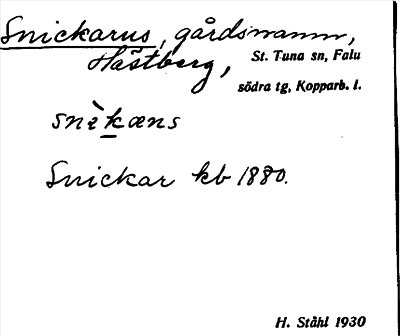 Snickarus, gårdsnamn,
Hästberg, St. Tuna sn, Falu
södra tg, Kopparb. l.
snèkæns
Snickar kb 1880.
H. Ståhl 1930